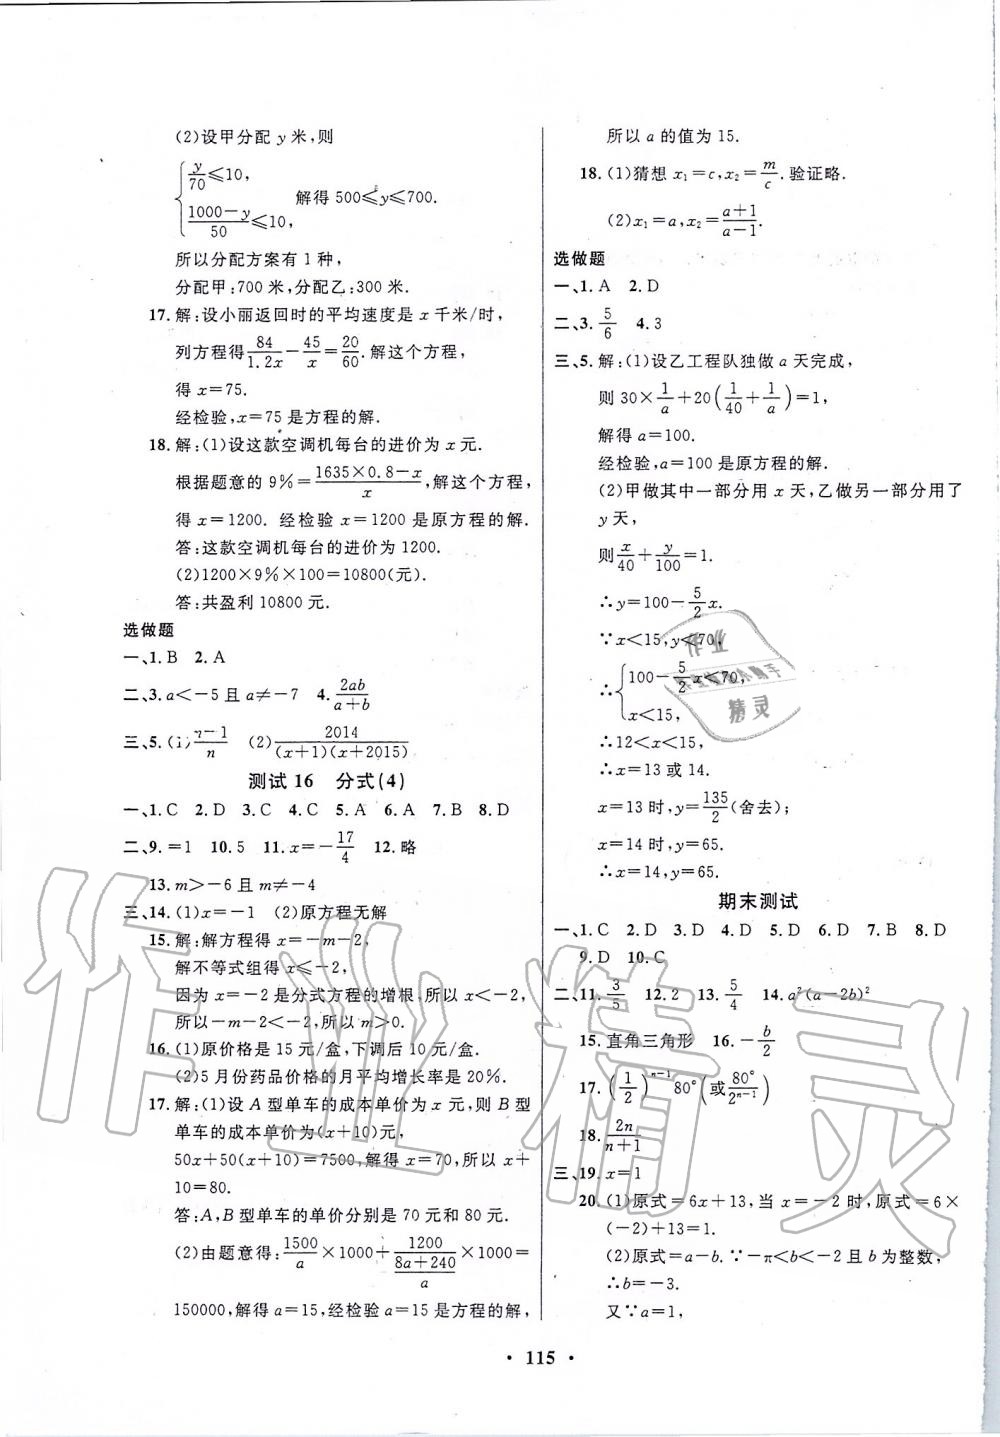 (2)设甲分配 y 米,则
{ y/70≤10,
1000-y/50≤10, 解得 500≤y≤700.
所以分配方案有 1 种,
分配甲:700 米,分配乙:300 米.
17. 解:设小丽返回时的平均速度是 x 千米/时,
列方程得 84/1.2x - 45/x = 20/60. 解这个方程,
得 x=75.
经检验,x=75 是方程的解.
18. 解:(1)设这款空调机每台的进价为 x 元.
根据题意的 9%= (1635×0.8-x)/x ,解这个方程,
得 x=1200. 经检验 x=1200 是原方程的解.
答:这款空调机每台的进价为 1200.
(2)1200×9%×100=10800(元).
答:共盈利 10800 元.
选做题
一、1. B 2. A
二、3. a<-5 且 a≠-7 4. 2ab/(a+b)
三、5. (1) (n-1)/n (2) 2014/((x+1)(x+2015))
测试 16 分式(4)
一、1. C 2. D 3. C 4. C 5. A 6. A 7. B 8. D
二、9. =1 10. 5 11. x=-17/4 12. 略
13. m>-6 且 m≠-4
三、14. (1)x=-1 (2)原方程无解
15. 解:解方程得 x=-m-2,
解不等式组得 x≤-2,
因为 x=-2 是分式方程的增根,所以 x<-2,
所以-m-2<-2,所以 m>0.
16. (1)原价格是 15 元/盒,下调后 10 元/盒.
(2)5 月份药品价格的月平均增长率是 20%.
17. 解:(1)设 A 型单车的成本单价为 x 元,则 B 型
单车的成本单价为(x+10)元,
50x+50(x+10)=7500,解得 x=70,所以 x+
10=80.
答:A,B 型单车的单价分别是 70 元和 80 元.
(2)由题意得: 1500/a ×1000+ 1200/((8a+240)/a) ×1000=
150000,解得 a=15,经检验 a=15 是方程的解,
所以 a 的值为 15.
18. (1)猜想 x₁=c,x₂= m/c. 验证略.
(2)x₁=a,x₂= (a+1)/(a-1).
选做题
一、1. A 2. D
二、3. 5/6 4. 3
三、5. 解:(1)设乙工程队独做 a 天完成,
则 30× 1/a +20(1/40 + 1/a)=1,
解得 a=100.
经检验,a=100 是原方程的解.
(2)甲做其中一部分用 x 天,乙做另一部分用了
y 天,
则 x/40 + y/100 =1.
∴y=100- 5/2 x.
∵x<15,y<70,
∴{ 100- 5/2 x<70,
x<15,
∴12<x<15,
∴x=13 或 14.
x=13 时,y= 135/2 (舍去);
x=14 时,y=65.
∴x=14,y=65.
期末测试
一、1. C 2. D 3. D 4. D 5. D 6. D 7. B 8. D
9. D 10. C
二、11. 3/5 12. 2 13. 5/4 14. a²(a-2b)²
15. 直角三角形 16. -b/2
17. (1/2)ⁿ⁻¹80°(或 80°/2ⁿ⁻¹)
18. 2n/(n+1)
三、19. x=1
20. (1)原式=6x+13,当 x=-2 时,原式=6×
(-2)+13=1.
(2)原式=a-b. ∵-π<b<-2 且 b 为整数,
∴b=-3.
又∵a=1,
· 115 ·
作业精灵
作业
精灵